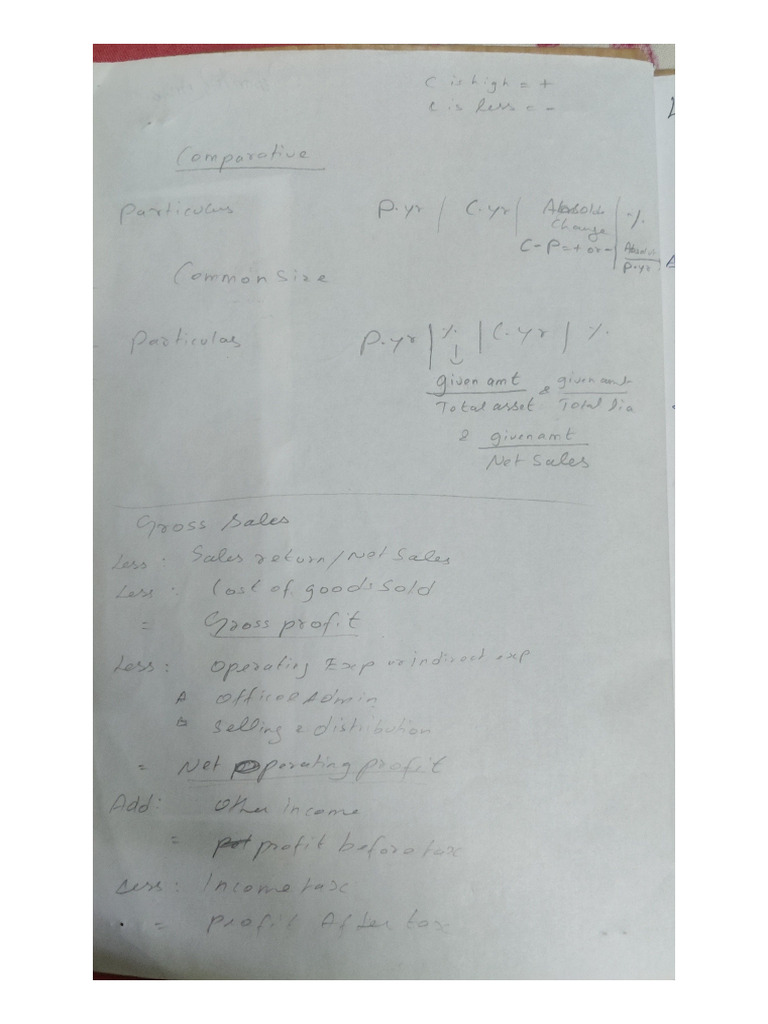 C is high = +
C is less = -
Comparative
Particulars P.yr | C.yr | Absolute Change | %
C - P = + or - | Absolute / P.yr
Common Size
Particulas P.yr | % | C.yr | %
given amt / Total asset & given amt / Total lia
& given amt / Net Sales
Gross Sales
Less : Sales return / Net Sales
Less : Cost of goods Sold
= Gross profit
Less : Operating Exp or indirect exp
A Office & Admin
B Selling & distribution
= Net operating profit
Add : Other income
= profit before tax
Less : Income tax
= profit After tax